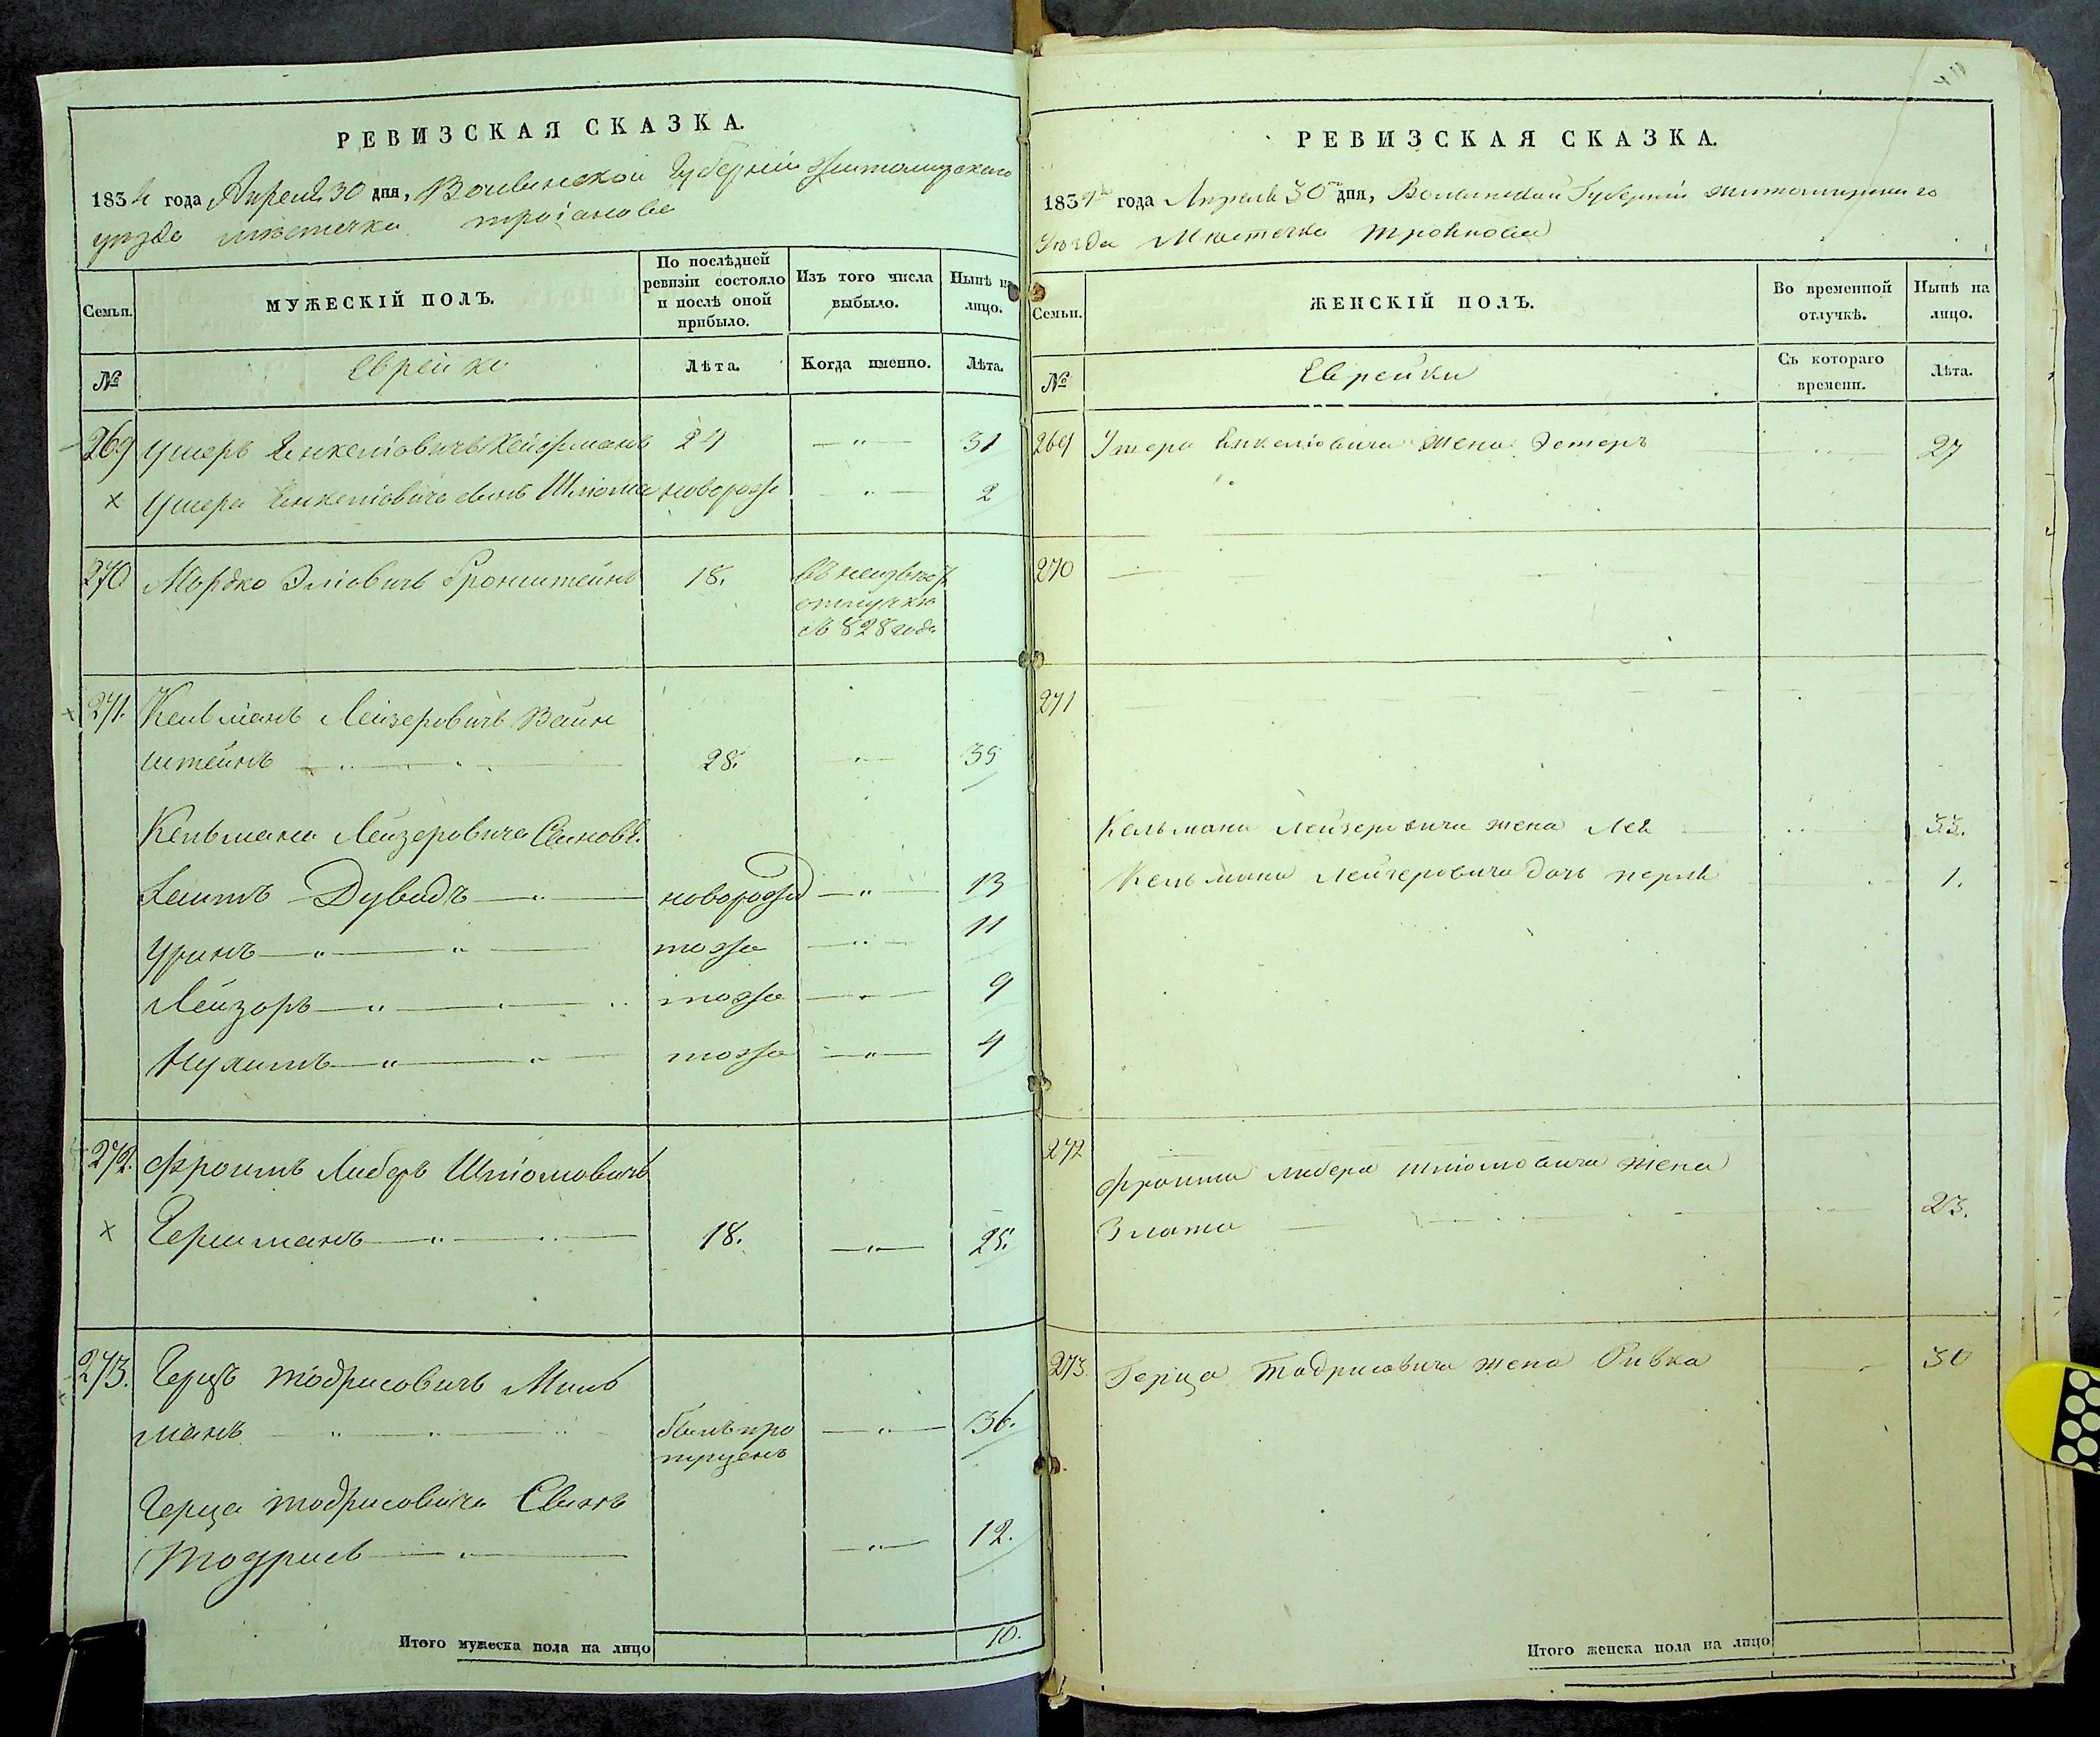 РЕВИЗСКАЯ СКАЗКА.
1834 года Апреля 30 дня, Волинской Губернии Житомирского
уезда местечка троіанова
Семьи. МУЖЕСКІЙ ПОЛЪ. По послѣдней ревизіи состояло и послѣ оной прибыло. Изъ того числа выбыло. Нынѣ на лицо.
№ Евреики Лѣта. Когда именно. Лѣта.
269 Ушеръ Янкеліовичъ Хейфманъ 24 — " — 31
х Ушера Янкеліовича сынъ Шліома новорож — " — 2
270 Мордко Эліовичъ Бронштейнъ 18. въ неизвест
отлучки
съ 828 года
271. Кельманъ Лейзеровичъ Вайн
штейнъ 28. — " — 35
Кельмана Лейзеровича Сыновя.
Хаимъ Дувидъ новорожд — " — 13
Уринъ — " — " — тоже — " — 11
Лейзоръ — " — тоже — " — 9
Нухимъ — " — тоже — " — 4
272. Фроимъ Либеръ Шліомовичъ
х Гершманъ — " — 18. — " — 25.
273. Герцъ тодрисовичъ Миль
манъ былъ про — " — 36.
пущенъ
Герца тодрисовича Сынъ
Тодрисъ — " — 12.
Итого мужеска пола на лицо 10.
РЕВИЗСКАЯ СКАЗКА.
1834 года Апреля 30 дня, Волинской Губерніи житомирского
Уезда Местечка Троянова
Семьи. ЖЕНСКІЙ ПОЛЪ. Во временной отлучкѣ. Нынѣ на лицо.
№ Еврейки Съ котораго времени. Лѣта.
269 Ушера Янкеліовича жена Эстеръ 27
270
271
Кельмана Лейзеровича жена Лея 33.
Кельмана Лейзеровича дочь перля 1.
272
Фроима либера шліомовича жена
Злата 23.
273 Герца Тодрисовича жена Ривка 30
Итого женска пола на лицо